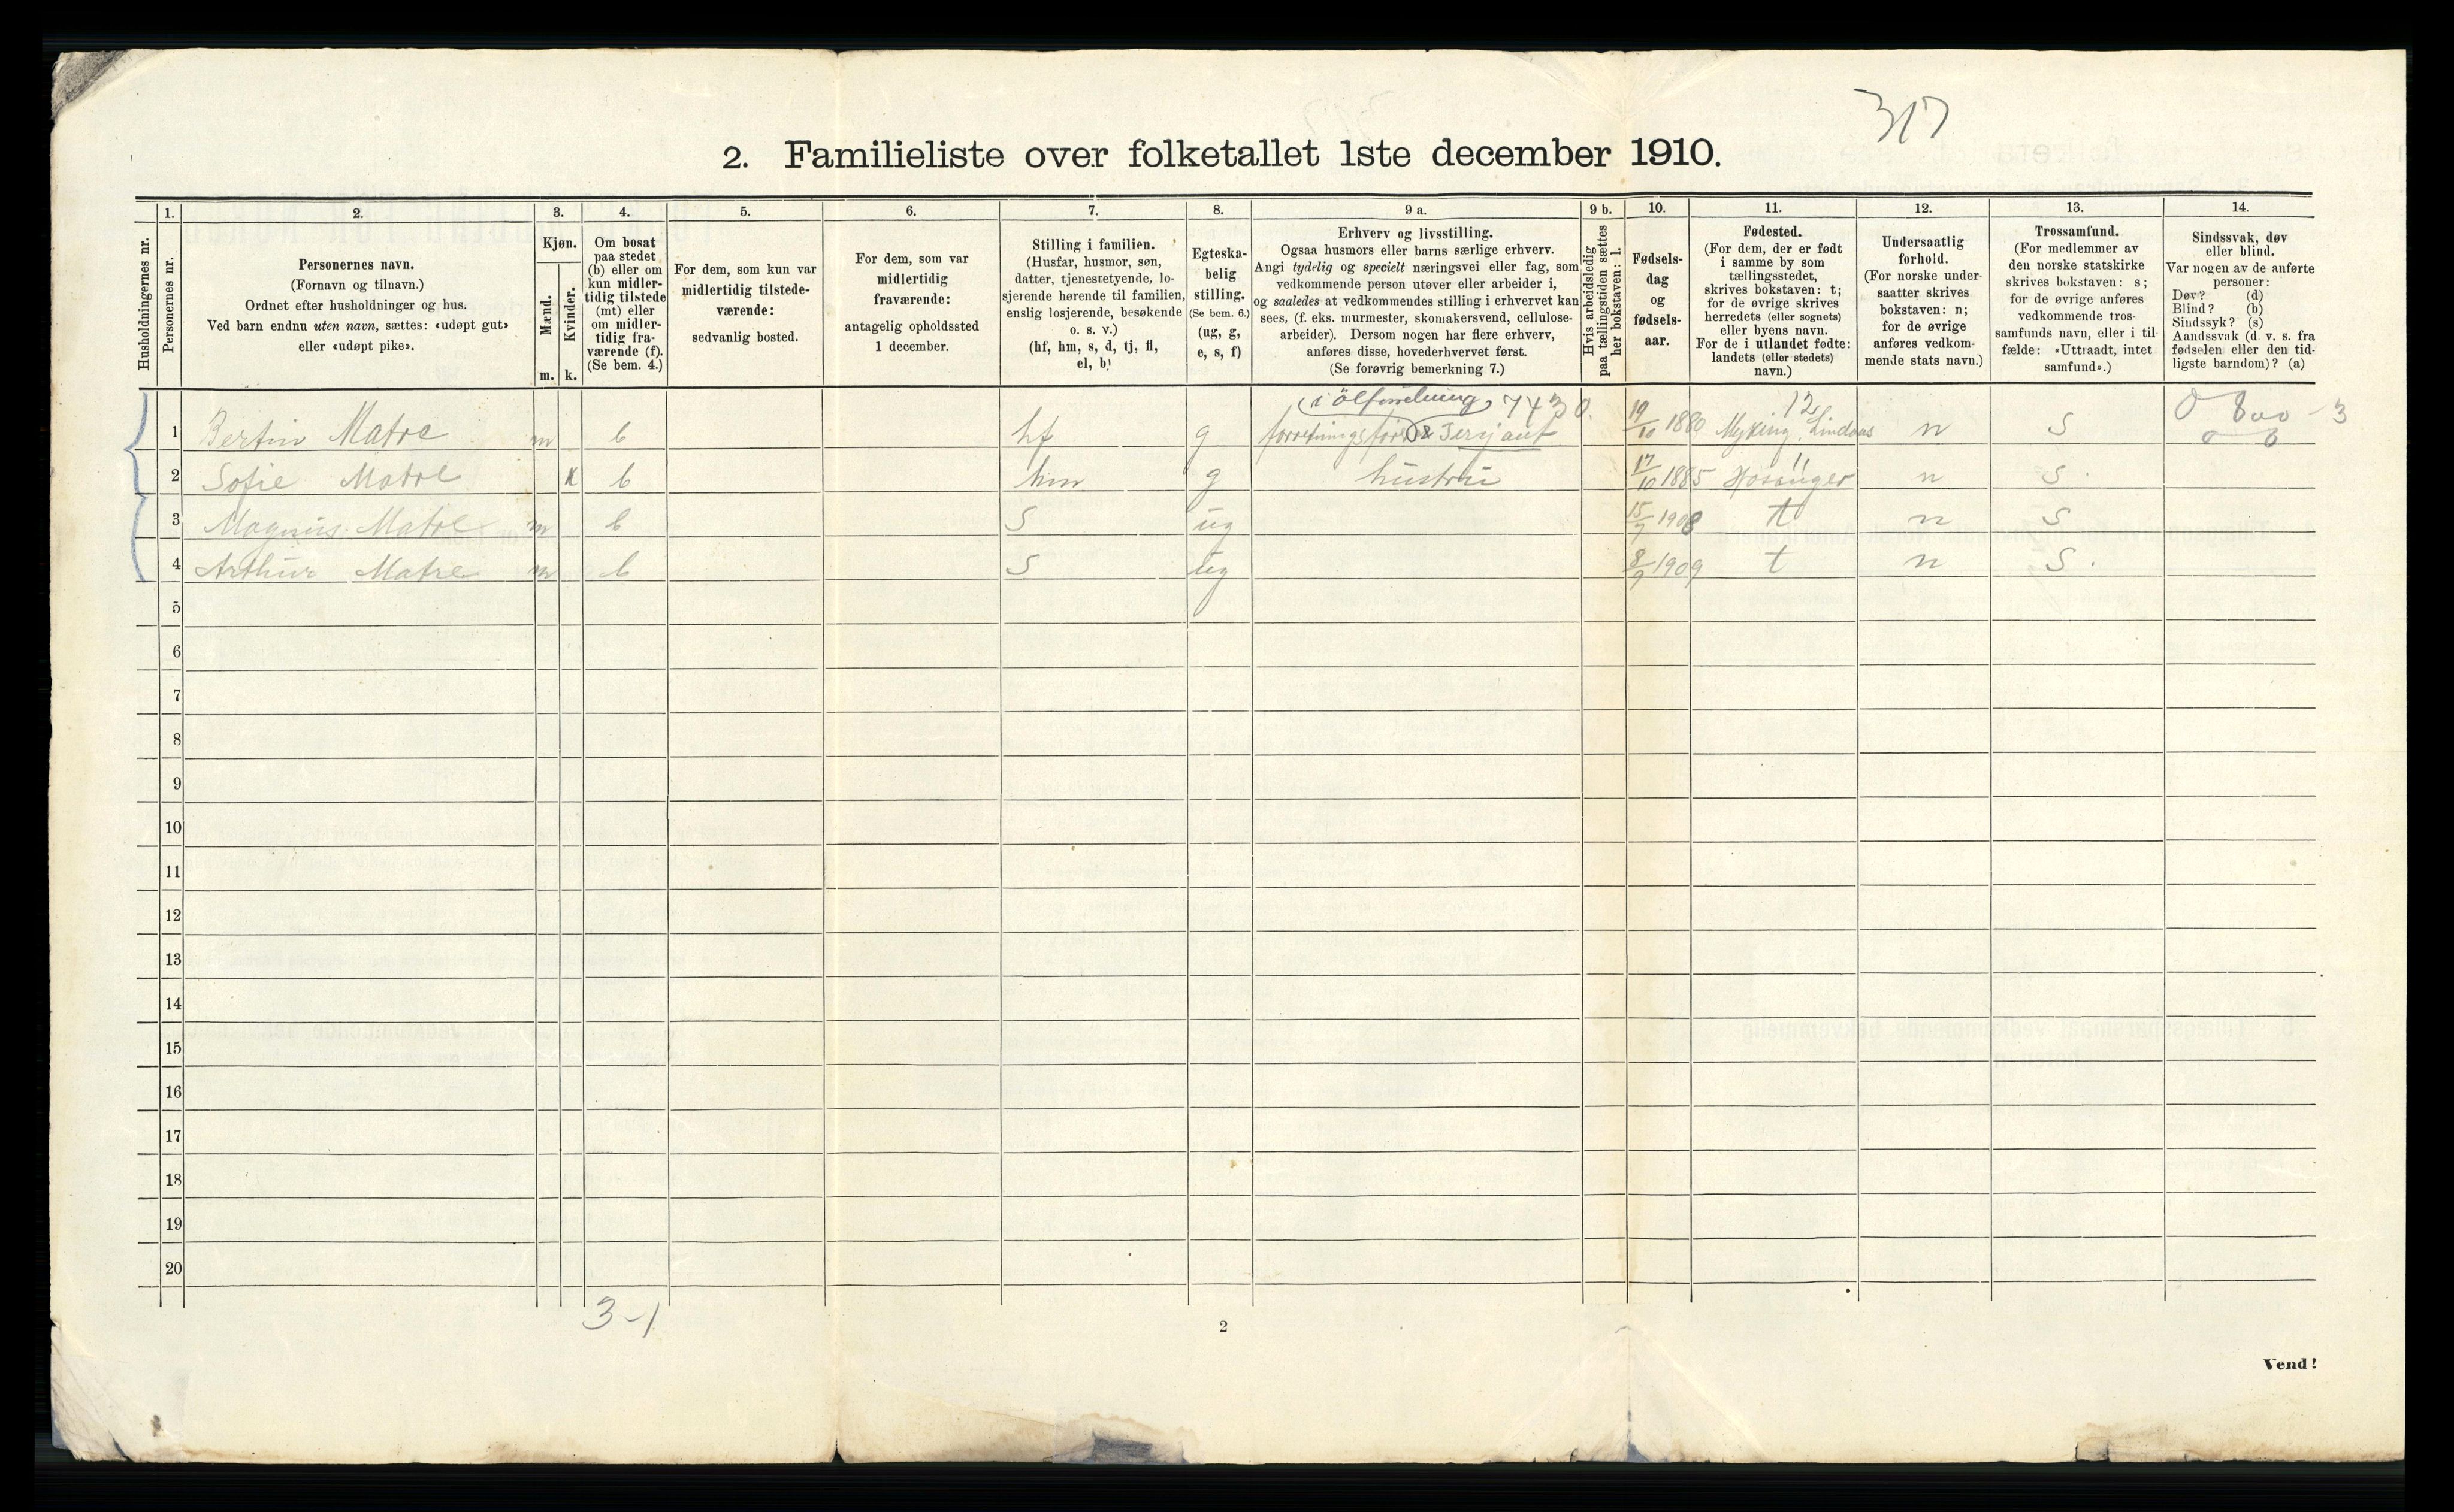 317
2. Familieliste over folketallet 1ste december 1910.
Husholdningernes nr.
1. Personernes nr.
2. Personernes navn.
(Fornavn og tilnavn.)
Ordnet efter husholdninger og hus.
Ved barn endnu uten navn, sættes: «udøpt gut»
eller «udøpt pike».
3. Kjøn.
Mænd. m.
Kvinder. k.
4. Om bosat
paa stedet
(b) eller om
kun midler-
tidig tilstede
(mt) eller
om midler-
tidig fra-
værende (f).
(Se bem. 4.)
5. For dem, som kun var
midlertidig tilstede-
værende:
sedvanlig bosted.
6. For dem, som var
midlertidig
fraværende:
antagelig opholdssted
1 december.
7. Stilling i familien.
(Husfar, husmor, søn,
datter, tjenestetyende, lo-
sjerende hørende til familien,
enslig losjerende, besøkende
o. s. v.)
(hf, hm, s, d, tj, fl,
el, b)
8. Egteska-
belig
stilling.
(Se bem. 6.)
(ug, g,
e, s, f)
9 a. Erhverv og livsstilling.
Ogsaa husmors eller barns særlige erhverv.
Angi tydelig og specielt næringsvei eller fag, som
vedkommende person utøver eller arbeider i,
og saaledes at vedkommendes stilling i erhvervet kan
sees, (f. eks. murmester, skomakersvend, cellulose-
arbeider). Dersom nogen har flere erhverv,
anføres disse, hovederhvervet først.
(Se forøvrig bemerkning 7.)
9 b. Hvis arbeidsledig
paa tællingstiden sættes
her bokstaven: l.
10. Fødsels-
dag
og
fødsels-
aar.
11. Fødested.
(For dem, der er født
i samme by som
tællingsstedet,
skrives bokstaven: t;
for de øvrige skrives
herredets (eller sognets)
eller byens navn.
For de i utlandet fødte:
landets (eller stedets)
navn.)
12. Undersaatlig
forhold.
(For norske under-
saatter skrives
bokstaven: n;
for de øvrige
anføres vedkom-
mende stats navn.)
13. Trossamfund.
(For medlemmer av
den norske statskirke
skrives bokstaven: s;
for de øvrige anføres
vedkommende tros-
samfunds navn, eller i til-
fælde: «Uttraadt, intet
samfund».)
14. Sindssvak, døv
eller blind.
Var nogen av de anførte
personer:
Døv? (d)
Blind? (b)
Sindssyk? (s)
Aandssvak (d. v. s. fra
fødselen eller den tid-
ligste barndom)? (a)
(i ølforretning) 7430. 12
1 Bertin Matre m b hf g forretningsfører & Sersjant 19/10 1880 Myking, Lindaas n S
2 Sofie Matre k b hm g hustru 17/10 1885 11 Hosanger n S.
3 Magnus Matre m b S ug 15/7 1908 t n S
4 Arthur Matre m b S ug 8/9 1909 t n S.
5
6
7
8
9
10
11
12
13
14
15
16
17
18
19
20
3-1
2
Vend!